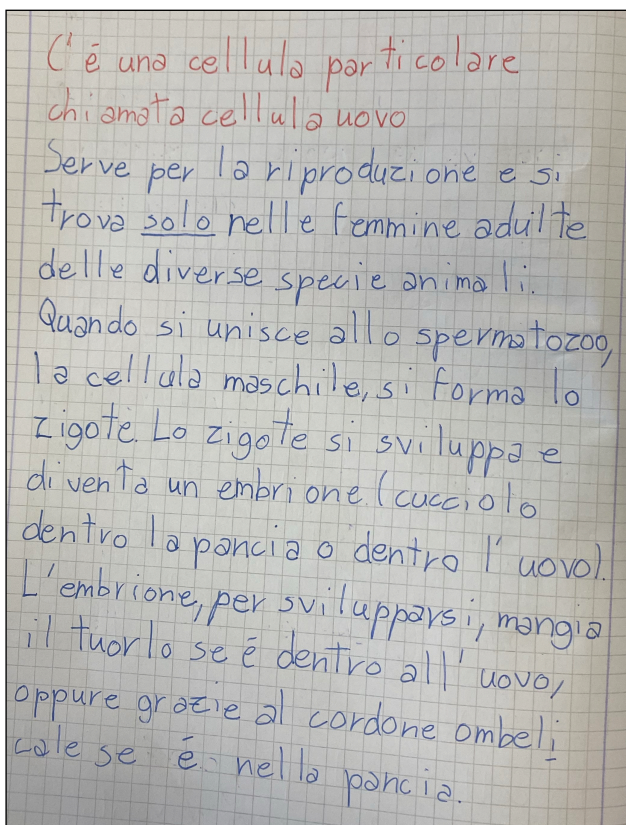 C'é una cellula particolare
chiamata cellula uovo
Serve per la riproduzione e si
trova solo nelle femmine aduilte
delle diverse specie animali.
Quando si unisce allo spermatozoo,
la cellula maschile, si forma lo
zigote. Lo zigote si sviluppa e
diventa un embrione (cucciolo
dentro la pancia o dentro l'uovo).
L'embrione, per svilupparsi, mangia
il tuorlo se é dentro all'uovo,
oppure grazie al cordone ombeli
cale se é nella pancia.